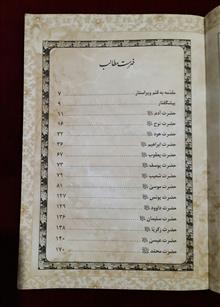 فهرست مطالب
مقدمه به قلم ویراستار ۷
پیشگفتار ۹
حضرت آدم ﷺ ۱۱
حضرت نوح ۱۶
حضرت هود ۲۲
حضرت ابراهیم ۳۶
حضرت یعقوب ۶۷
حضرت یوسف ۷۳
حضرت شعیب ۷۷
حضرت موسی ۸۱
حضرت یونس ۱۲۷
حضرت داوود ۱۲۹
حضرت سلیمان ۱۳۶
حضرت زکریا ۱۳۸
حضرت عیسی ۱۴۰
حضرت محمد ۱۷۰